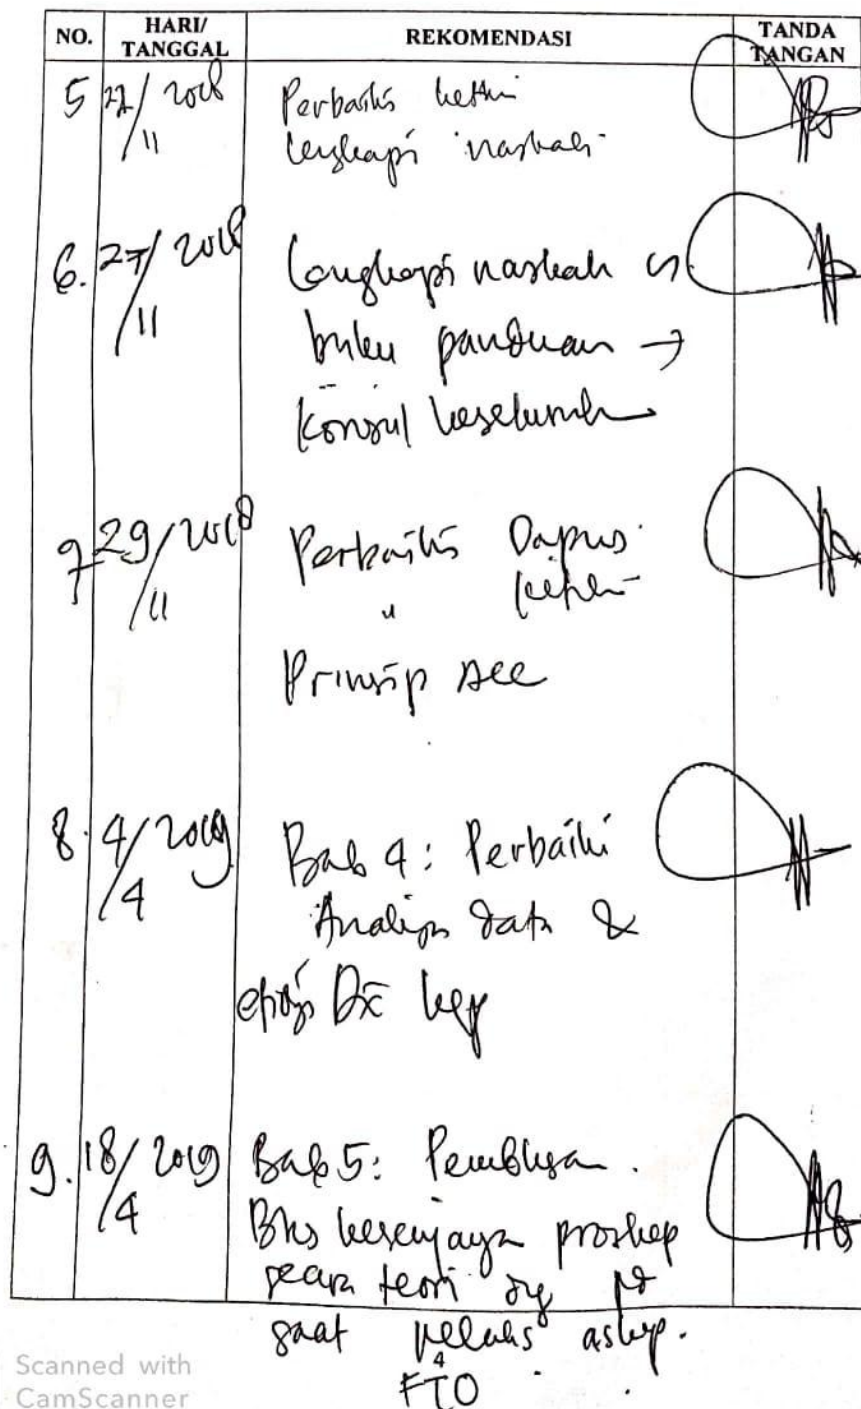 NO. HARI/ TANGGAL REKOMENDASI TANDA TANGAN
5 27/11 2018 Perbaiki
lengkapi naskah
6. 27/11 2018 Lengkapi naskah
buku panduan →
Konsul keseluruh
7 29/11 2018 Perbaiki Dapus
Prinsip Acc
8. 4/4 2019 Bab 4: Perbaiki
Analisa data &
Dx kep
9. 18/4 2019 Bab 5: Pembhsan.
Bhs kesenjangan proskep
secara teori dg pd
saat pelaks askep.
4
FTO
Scanned with
CamScanner